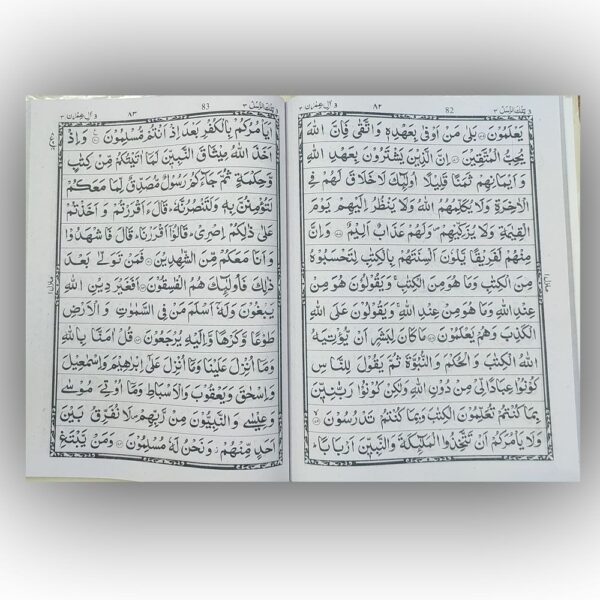 تِلْكَ الرُّسُلُ ٣ 82 ٨٢ اٰلِ عِمْرٰن ٣
يَعْلَمُوْنَ ۝ بَلٰى مَنْ اَوْفٰى بِعَهْدِهٖ وَاتَّقٰى فَاِنَّ اللّٰهَ
يُحِبُّ الْمُتَّقِيْنَ ۝ اِنَّ الَّذِيْنَ يَشْتَرُوْنَ بِعَهْدِ اللّٰهِ
وَاَيْمَانِهِمْ ثَمَنًا قَلِيْلًا اُولٰٓئِكَ لَا خَلَاقَ لَهُمْ فِى
الْاٰخِرَةِ وَلَا يُكَلِّمُهُمُ اللّٰهُ وَلَا يَنْظُرُ اِلَيْهِمْ يَوْمَ
الْقِيٰمَةِ وَلَا يُزَكِّيْهِمْ ۪ وَلَهُمْ عَذَابٌ اَلِيْمٌ ۝ وَاِنَّ
مِنْهُمْ لَفَرِيْقًا يَّلْوٗنَ اَلْسِنَتَهُمْ بِالْكِتٰبِ لِتَحْسَبُوْهُ
مِنَ الْكِتٰبِ وَمَا هُوَ مِنَ الْكِتٰبِ ۚ وَيَقُوْلُوْنَ هُوَ مِنْ
عِنْدِ اللّٰهِ وَمَا هُوَ مِنْ عِنْدِ اللّٰهِ ۚ وَيَقُوْلُوْنَ عَلَى اللّٰهِ
الْكَذِبَ وَهُمْ يَعْلَمُوْنَ ۝ مَا كَانَ لِبَشَرٍ اَنْ يُّؤْتِيَهُ
اللّٰهُ الْكِتٰبَ وَالْحُكْمَ وَالنُّبُوَّةَ ثُمَّ يَقُوْلَ لِلنَّاسِ
كُوْنُوْا عِبَادًا لِّىْ مِنْ دُوْنِ اللّٰهِ وَلٰكِنْ كُوْنُوْا رَبّٰنِيّٖنَ
بِمَا كُنْتُمْ تُعَلِّمُوْنَ الْكِتٰبَ وَبِمَا كُنْتُمْ تَدْرُسُوْنَ ۝
وَلَا يَاْمُرَكُمْ اَنْ تَتَّخِذُوا الْمَلٰٓئِكَةَ وَالنَّبِيّٖنَ اَرْبَابًا ؕ
تِلْكَ الرُّسُلُ ٣ 83 ٨٣ اٰلِ عِمْرٰن ٣
اَيَاْمُرُكُمْ بِالْكُفْرِ بَعْدَ اِذْ اَنْتُمْ مُّسْلِمُوْنَ ۝ وَاِذْ
اَخَذَ اللّٰهُ مِيْثَاقَ النَّبِيّٖنَ لَمَآ اٰتَيْتُكُمْ مِّنْ كِتٰبٍ
وَّحِكْمَةٍ ثُمَّ جَآءَكُمْ رَسُوْلٌ مُّصَدِّقٌ لِّمَا مَعَكُمْ
لَتُؤْمِنُنَّ بِهٖ وَلَتَنْصُرُنَّهٗ ؕ قَالَ ءَاَقْرَرْتُمْ وَاَخَذْتُمْ
عَلٰى ذٰلِكُمْ اِصْرِىْ ؕ قَالُوْٓا اَقْرَرْنَا ؕ قَالَ فَاشْهَدُوْا
وَاَنَا مَعَكُمْ مِّنَ الشّٰهِدِيْنَ ۝ فَمَنْ تَوَلّٰى بَعْدَ
ذٰلِكَ فَاُولٰٓئِكَ هُمُ الْفٰسِقُوْنَ ۝ اَفَغَيْرَ دِيْنِ اللّٰهِ
يَبْغُوْنَ وَلَهٗٓ اَسْلَمَ مَنْ فِى السَّمٰوٰتِ وَالْاَرْضِ
طَوْعًا وَّكَرْهًا وَّاِلَيْهِ يُرْجَعُوْنَ ۝ قُلْ اٰمَنَّا بِاللّٰهِ
وَمَآ اُنْزِلَ عَلَيْنَا وَمَآ اُنْزِلَ عَلٰٓى اِبْرٰهِيْمَ وَاِسْمٰعِيْلَ
وَاِسْحٰقَ وَيَعْقُوْبَ وَالْاَسْبَاطِ وَمَآ اُوْتِىَ مُوْسٰى
وَعِيْسٰى وَالنَّبِيُّوْنَ مِنْ رَّبِّهِمْ ۪ لَا نُفَرِّقُ بَيْنَ
اَحَدٍ مِّنْهُمْ ؗ وَنَحْنُ لَهٗ مُسْلِمُوْنَ ۝ وَمَنْ يَّبْتَغِ